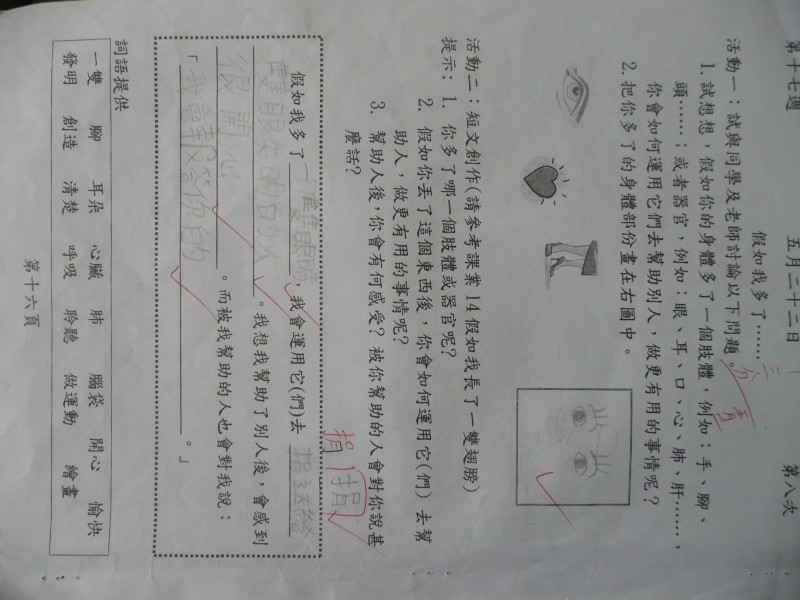 第十七週 五月二十二日 第八次
假如我多了……
活動一：試與同學及老師討論以下問題。
1. 試想想，假如你的身體多了一個肢體，例如：手、腳、
頭……；或者器官，例如：眼、耳、口、心、肺、肝……，
你會如何運用它們去幫助別人，做更有用的事情呢？
2. 把你多了的身體部份畫在右圖中。
活動二：短文創作(請參考課業 14 假如我長了一雙翅膀)
提示：1. 你多了哪一個肢體或器官呢？
2. 假如你丟了這個東西後，你會如何運用它(們) 去幫
助人，做更有用的事情呢？
3. 幫助人後，你會有何感受？被你幫助的人會對你說甚
麼話？
捐
捐
假如我多了一雙眼睛，我會運用它(們)去捐送給
雙眼失明的人。我想我幫助了別人後，會感到
很開心。而被我幫助的人也會對我說：
「我會報答你的。」
詞語提供
一雙 腳 耳朵 心臟 肺 腦袋 開心 愉快
發明 創造 清楚 呼吸 聆聽 做運動 繪畫
第十六頁